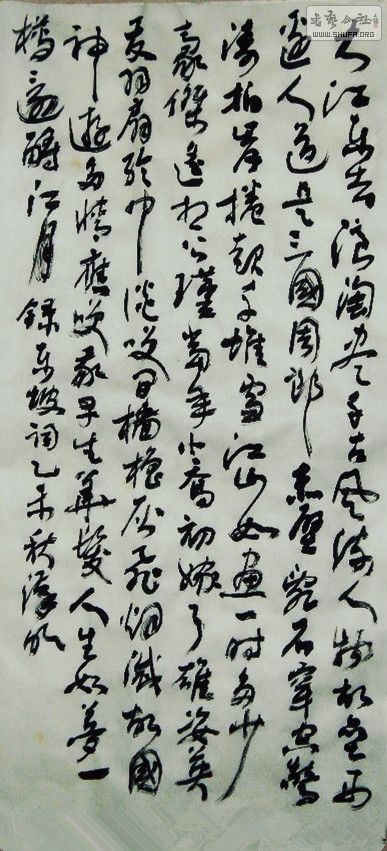 书艺公社
WWW.SHUFA.ORG
大江东去浪淘尽千古风流人物故垒西
边人道是三國周郎赤壁乱石穿空驚
濤拍岸捲起千堆雪江山如画一时多少
豪傑遥想公瑾當年小喬初嫁了雄姿英
发羽扇纶巾谈笑间檣櫓灰飛烟滅故國
神遊多情應笑我早生華髮人生如夢一
樽還酹江月錄东坡词乙未秋